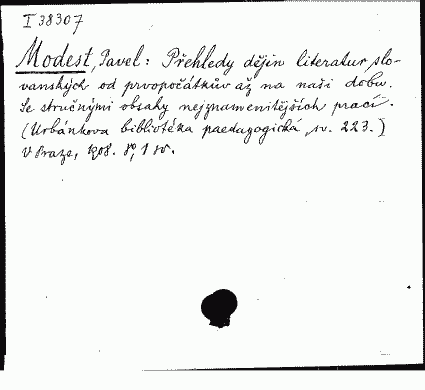 I 38307
Modest, Pavel: Přehledy dějin literatur slo-
vanských od prvopočátkův až na naši dobu.
Se stručnými obsahy nejznamenitějších prací.
(Urbánkova bibliotéka paedagogická, sv. 223.)
V Praze, 1908. 8°, 1 sv.